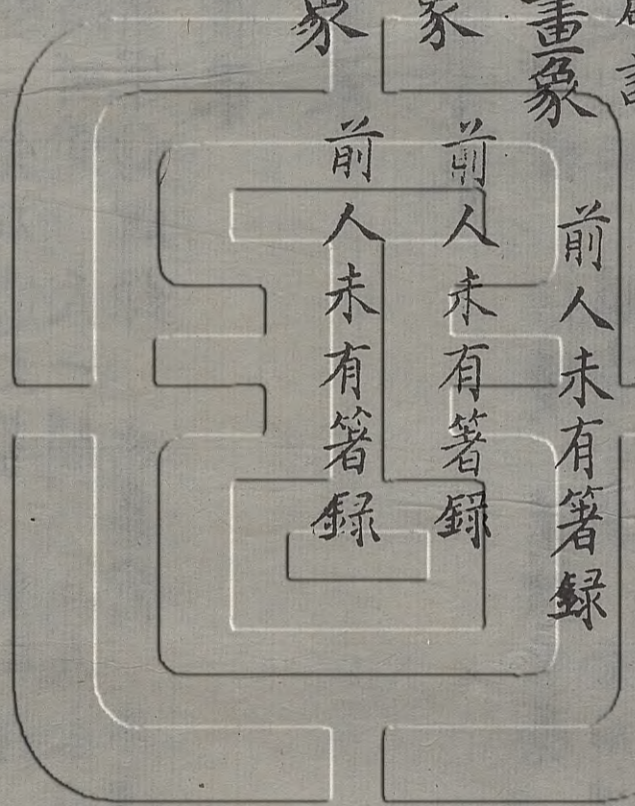 畫象
前人未有箸録
象
前人未有箸録
象
前人未有箸録